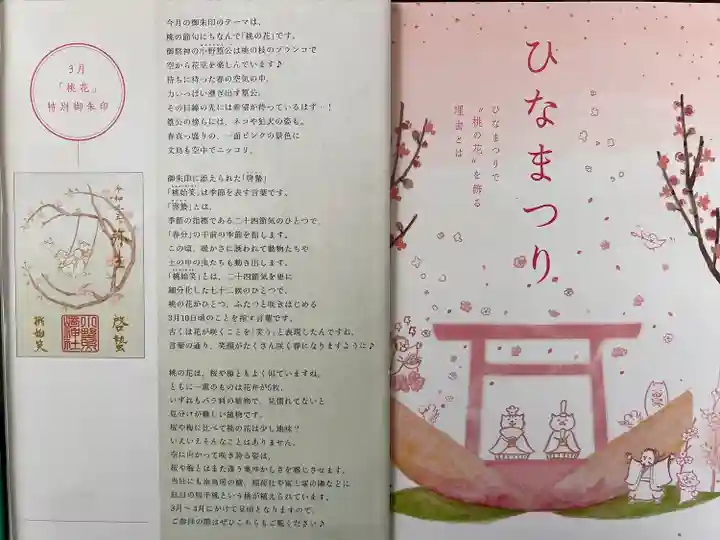 3月
「桃花」
特別御朱印
弥生
啓蟄
桃始笑
今月の御朱印のテーマは、
桃の節句にちなんで「桃の花」です。
御祭神の小野篁公は桃の枝のブランコで
空から花見を楽しんでいます♪
待ちに待った春の空気の中、
力いっぱい漕ぎ出す篁公。
その目線の先には希望が待っているはず…！
篁公の傍らには、ネコや狛犬の姿も。
春真っ盛りの、一面ピンクの景色に
文鳥も空中でニッコリ。
御朱印に添えられた「啓蟄」
「桃始笑」は季節を表す言葉です。
「啓蟄」とは、
季節の指標である二十四節気のひとつで、
「春分」の手前の季節を指します。
この頃、暖かさに誘われて動物たちや
土の中の虫たちも動き出します。
「桃始笑」とは、二十四節気を更に
細分化した七十二候のひとつで、
桃の花がひとつ、ふたつと咲きはじめる
3月10日頃のことを指す言葉です。
古くは花が咲くことを「笑う」と表現したんですね。
言葉の通り、笑顔がたくさん咲く春になりますように♪
桃の花は、桜や梅ともよく似ていますね。
ともに一重のものは花弁が5枚、
いずれもバラ科の植物で、見慣れてないと
見分けが難しい植物です。
桜や梅に比べて桃の花は少し地味？
いえいえそんなことはありません。
空に向かって咲き誇る姿は、
桜や梅とはまた違う奥ゆかしさを感じさせます。
当社にも
3月〜4月にかけて見頃となりますので、
ご参拝の際はぜひこちらもご覧ください♪
ひなまつり
ひなまつりで
“桃の花”を飾る
理由とは